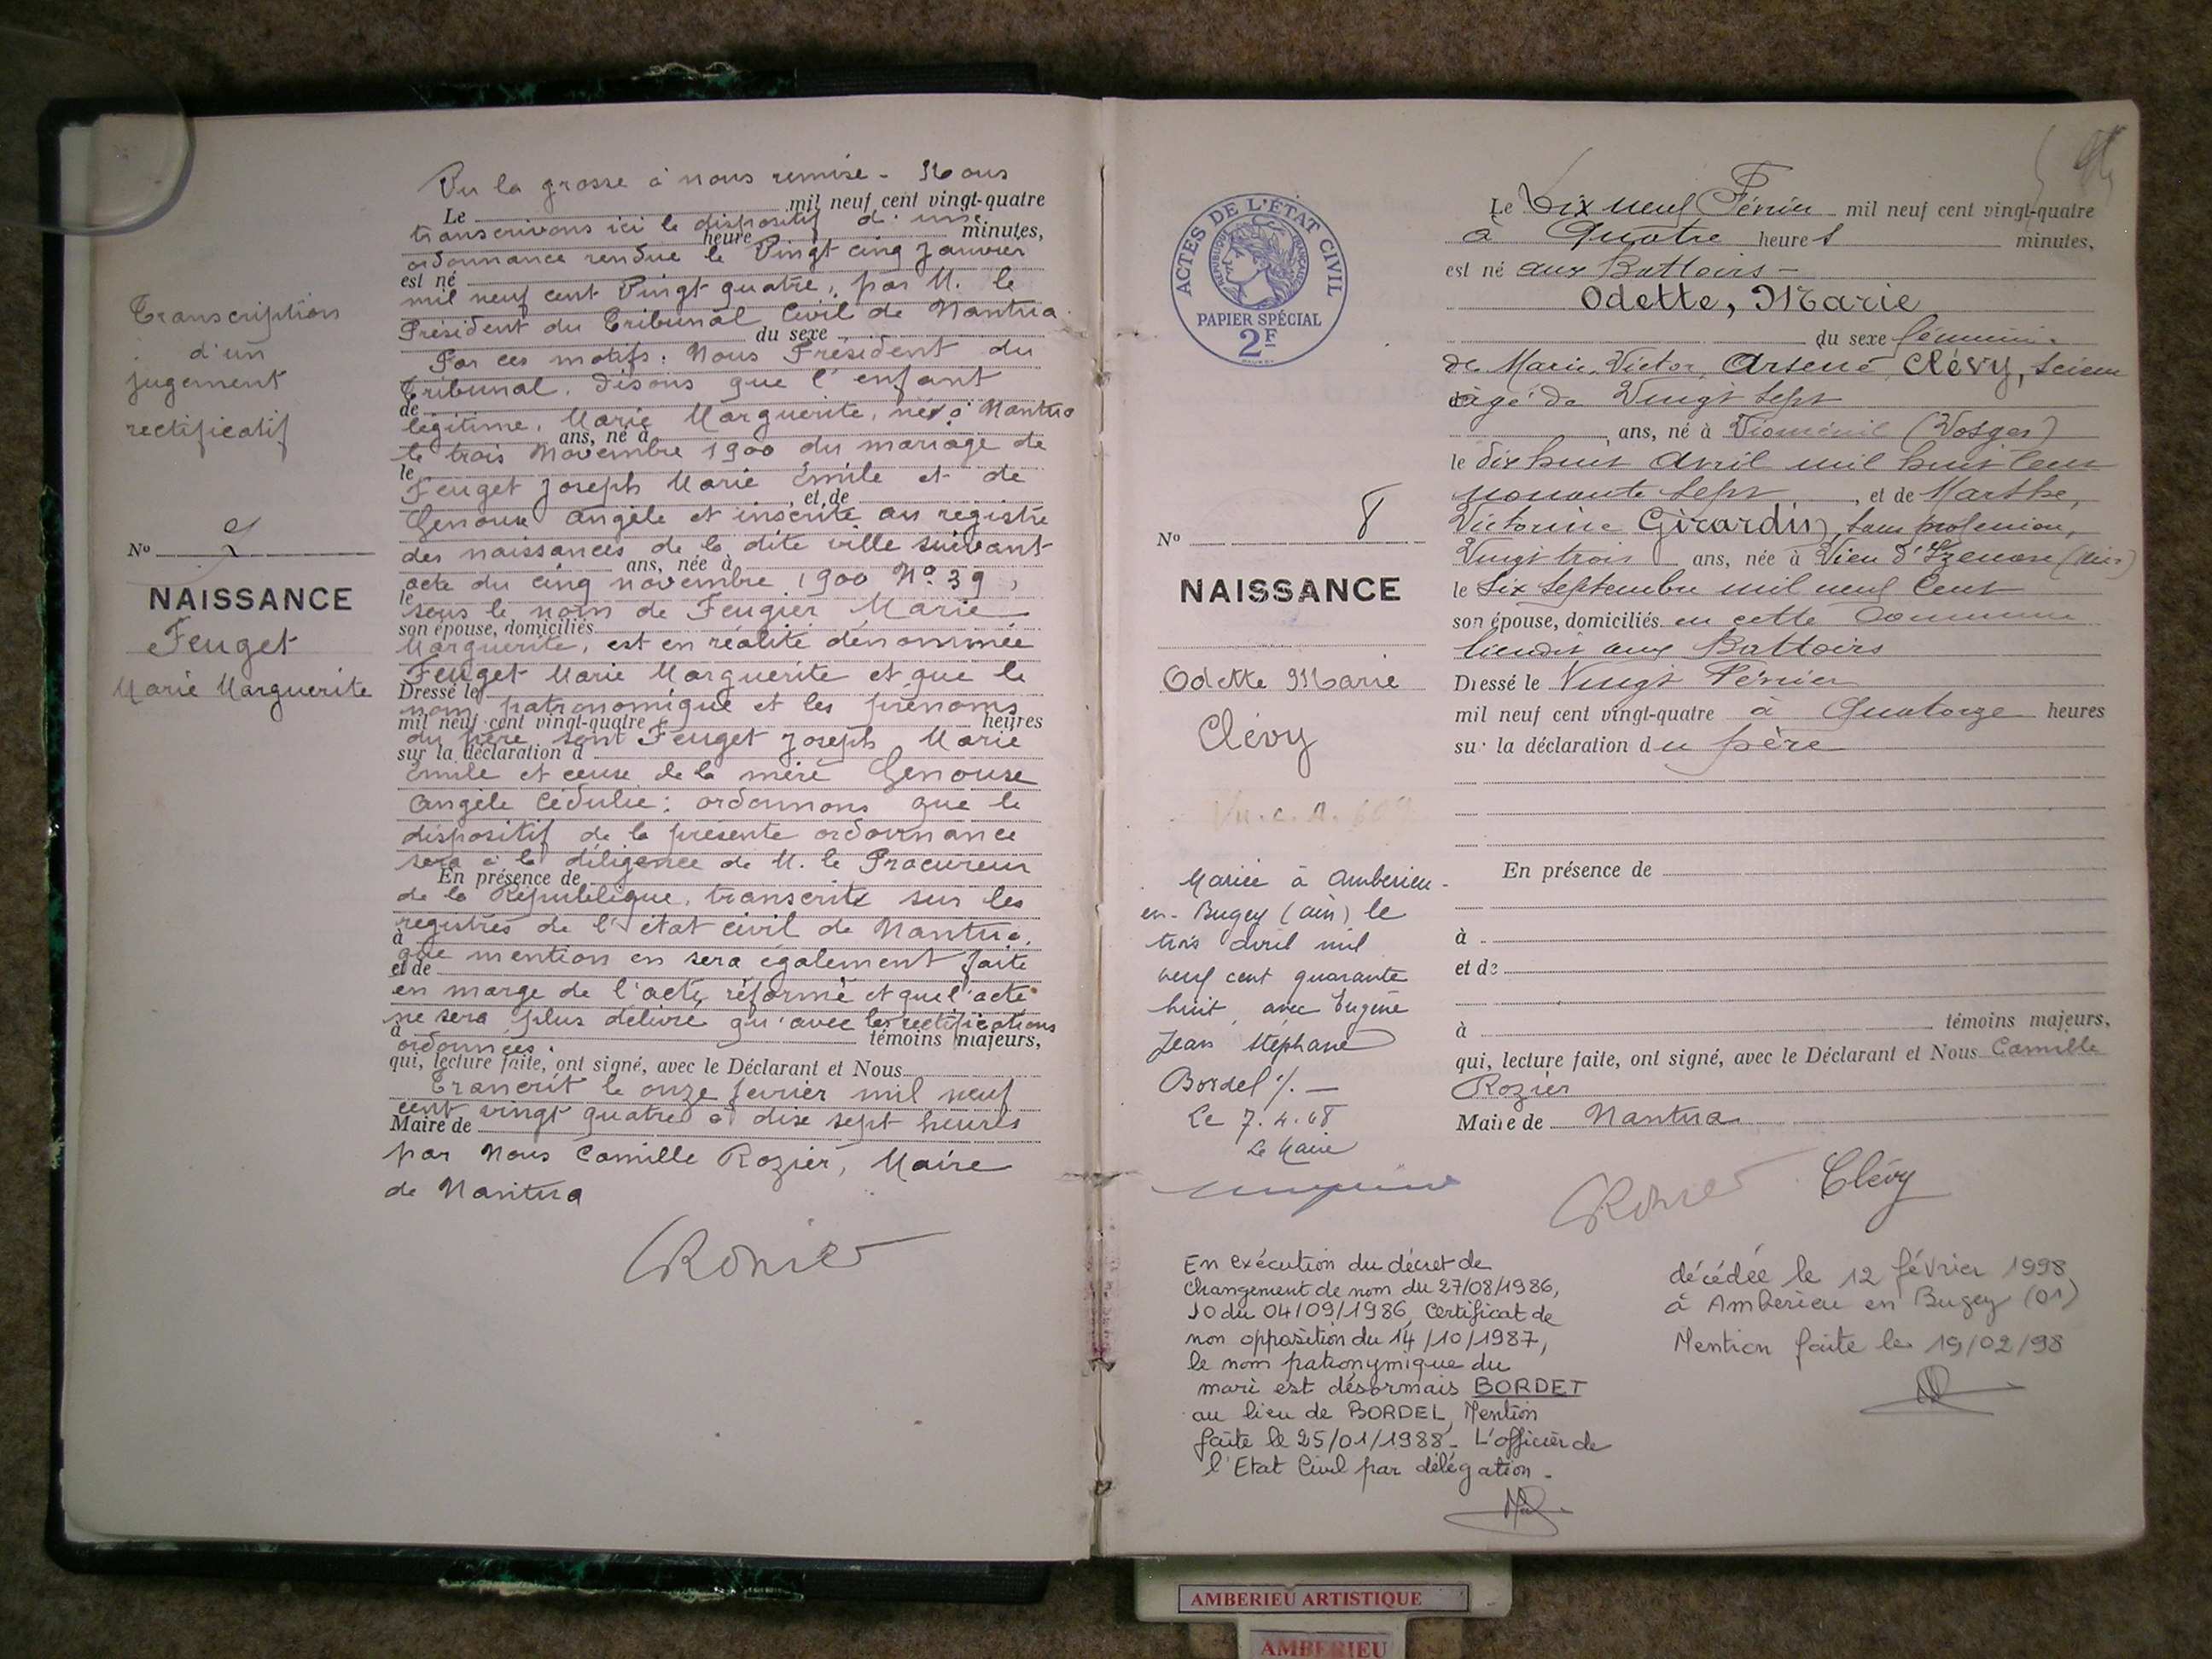 Transcription
d'un
jugement
rectificatif
No
NAISSANCE
Feuget
Marie Marguerite
Vu la grosse à nous remise - Nous
Le mil neuf cent vingt-quatre
transcrivons ici le dispositif d'une
heure minutes,
ordonnance rendue le Vingt cinq Janvier
est né
mil neuf cent Vingt quatre, par M. le
Président du Tribunal Civil de Nantua
du sexe
Par ces motifs: Nous Président du
Tribunal, disons que l'enfant
de
légitime, Marie Marguerite, née à Nantua
ans, né à
le trois Novembre 1900 du mariage de
le
Feuget Joseph Marie Émile et de
, et de
Genoux Angèle et inscrite au registre
des naissances de la dite ville suivant
ans, née à
acte du cinq novembre 1900 No. 39,
le
sous le nom de Feugier Marie
son épouse, domiciliés
Marguerite, est en réalité dénommée
Feuget Marie Marguerite et que le
Dressé le
nom patronymique et les prénoms
mil neuf cent vingt-quatre heures
du père sont Feuget Joseph Marie
sur la déclaration d
Émile et ceux de la mère Genoux
Angèle Cédulie: ordonnons que le
dispositif de la présente ordonnance
sera à la diligence de M. le Procureur
En présence de
de la République, transcrite sur les
registres de l'état civil de Nantua,
à
que mention en sera également faite
et de
en marge de l'acte réformé et que l'acte
ne sera plus délivré qu'avec les rectifications
à témoins majeurs,
ordonnées.
qui, lecture faite, ont signé, avec le Déclarant et Nous
Transcrit le onze février mil neuf
cent vingt quatre à dix sept heures
Maire de
par Nous Camille Rozier, Maire
de Nantua
CRozier
ACTES DE L'ÉTAT CIVIL
RÉPUBLIQUE FRANÇAISE
PAPIER SPÉCIAL
2F
No 8
NAISSANCE
Odette Marie
Clévy
Mariée à Ambérieu-
en-Bugey (Ain) le
trois avril mil
neuf cent quarante
huit, avec Eugène
Jean Stéphane
Bordel %. —
Le 7.4.48
Le Maire
Le Dix neuf Février mil neuf cent vingt-quatre
à Quatre heures minutes,
est né aux Battoirs -
Odette, Marie
du sexe féminin
de Marie, Victor, Arsène Clévy, scieur
âgé de Vingt Sept
, ans, né à Vioménil (Vosges)
le dix huit Avril mil huit cent
nonante sept, et de Marthe,
Victorine Girardin, sans profession,
Vingt trois ans, née à Vieu d'Izenave (Ain)
le Six Septembre mil neuf cent
son épouse, domiciliés en cette Commune
lieudit aux Battoirs
Dressé le Vingt Février
mil neuf cent vingt-quatre à Quatorze heures
sur la déclaration du père
En présence de
à
et de
à témoins majeurs,
qui, lecture faite, ont signé, avec le Déclarant et Nous Camille
Rozier
Maire de Nantua
CRozier Clévy
En exécution du décret de
changement de nom du 27/08/1986,
JO du 04/09/1986, Certificat de
non opposition du 14/10/1987,
le nom patronymique du
mari est désormais BORDET
au lieu de BORDEL, Mention
faite le 25/01/1988 - L'officier de
l'Etat Civil par délégation -
décédée le 12 février 1998
à Ambérieu en Bugey (01)
Mention faite le 19/02/98
AMBERIEU ARTISTIQUE
AMBERIEU